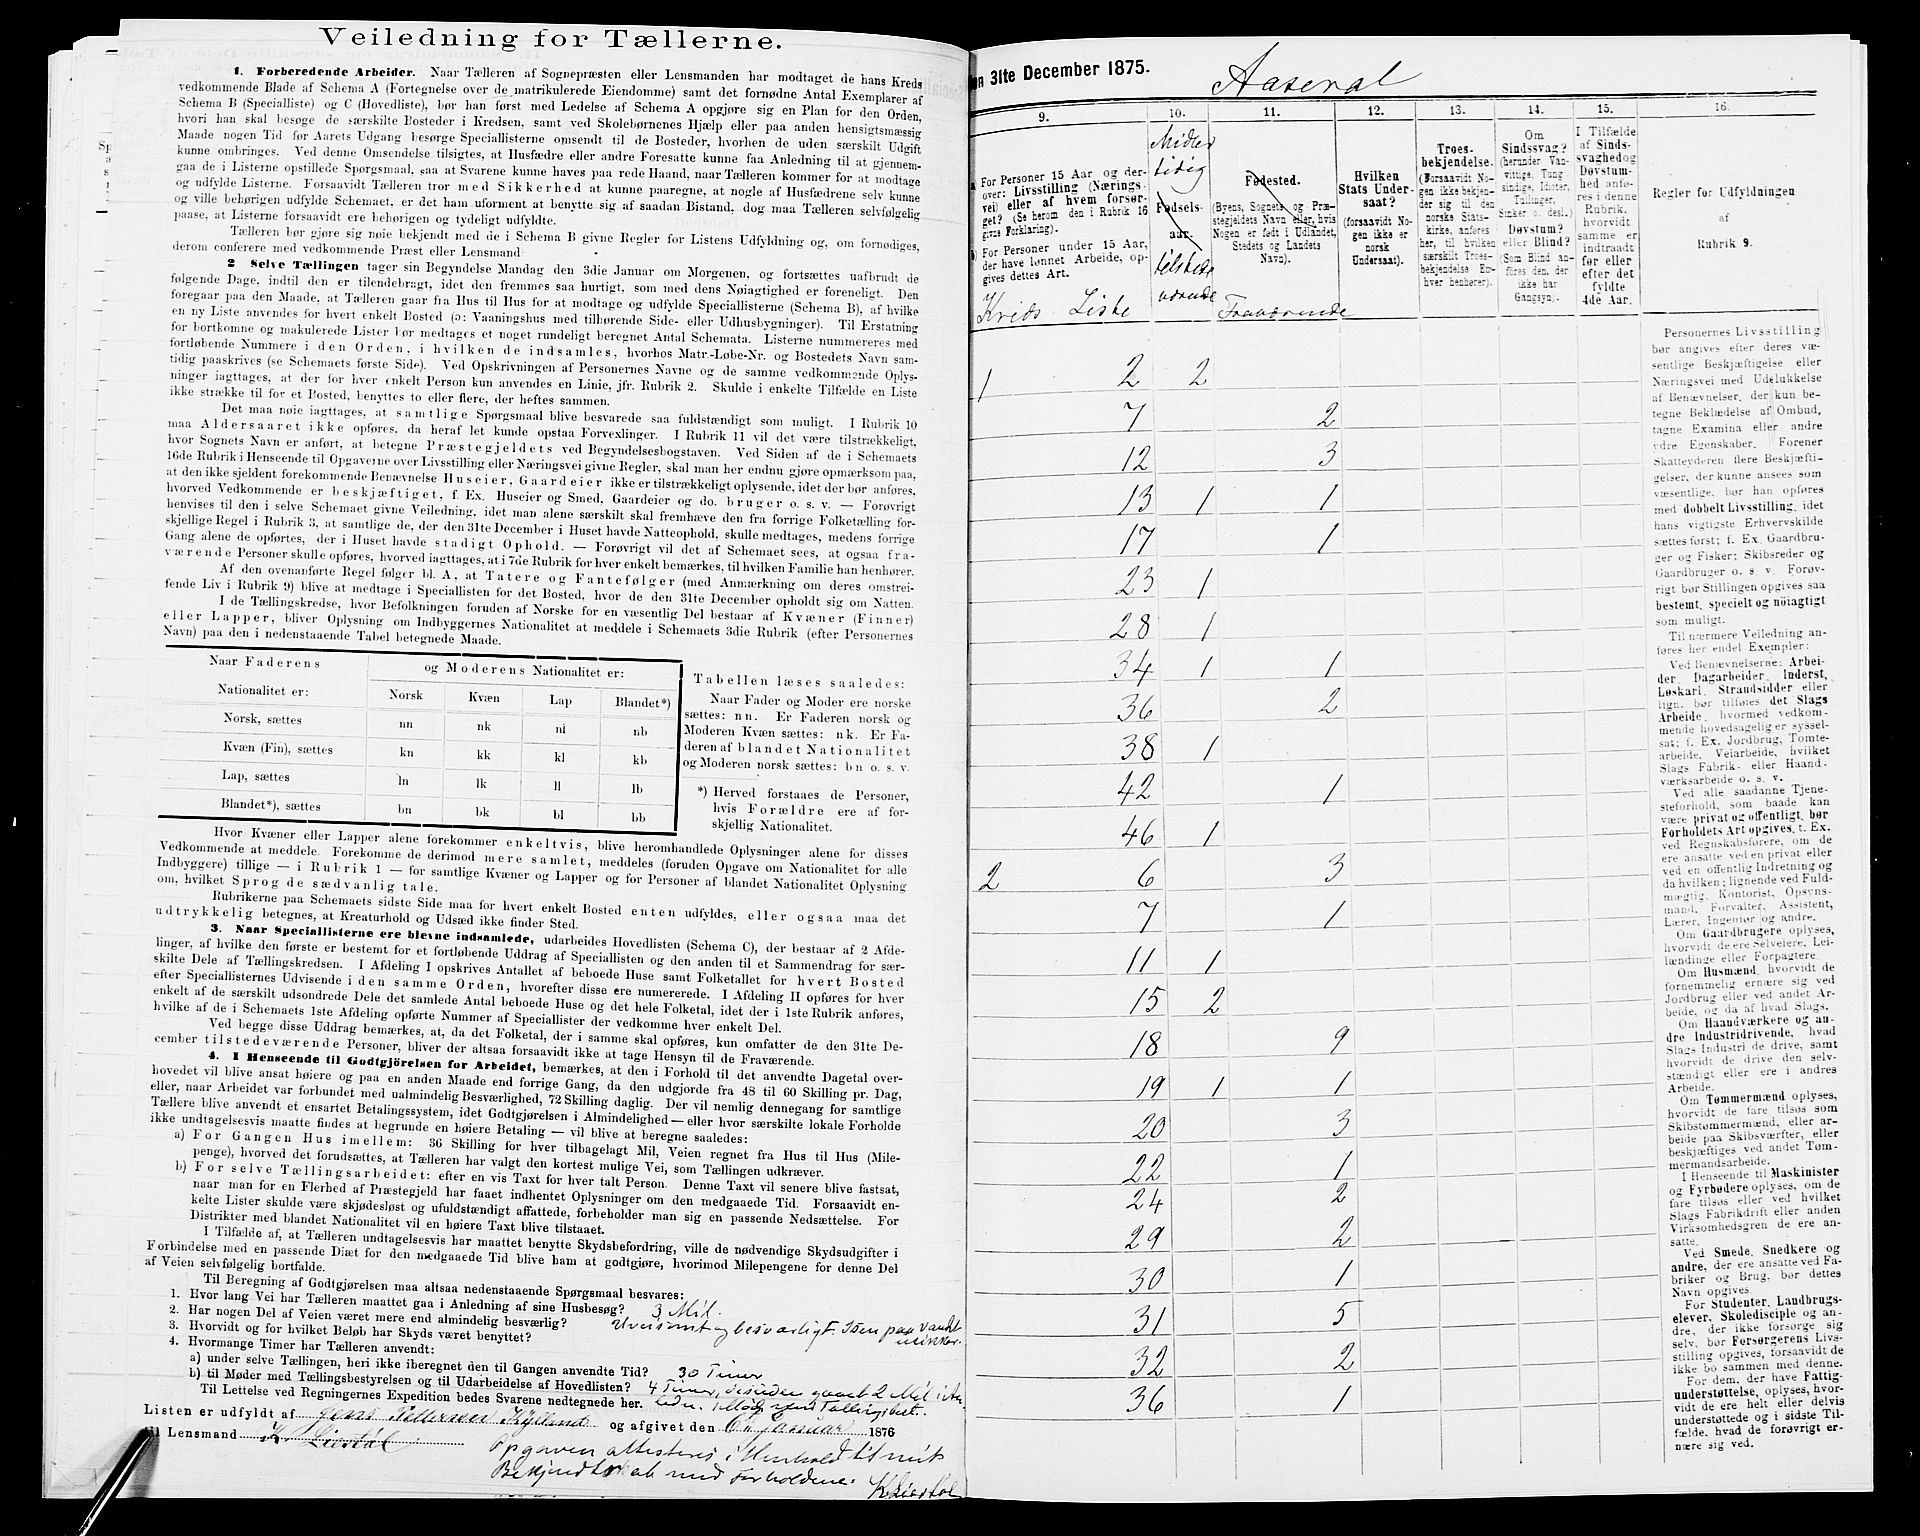 Veiledning for Tællerne.
1. Forberedende Arbeider. Naar Tælleren af Sognepræsten eller Lensmanden har modtaget de hans Kreds
vedkommende Blade af Schema A (Fortegnelse over de matrikulerede Eiendomme) samt det fornødne Antal Exemplarer af
Schema B (Specialliste) og C (Hovedliste), bør han først med Ledelse af Schema A opgjøre sig en Plan for den Orden,
hvori han skal besøge de særskilte Bosteder i Kredsen, samt ved Skolebørnenes Hjælp eller paa anden hensigtsmæssig
Maade nogen Tid før Aarets Udgang besørge Speciallisterne omsendt til de Bosteder, hvorhen de uden særskilt Udgift
kunne ombringes. Ved denne Omsendelse tilsigtes, at Husfædre eller andre Foresatte kunne faa Anledning til at gjennem-
gaa de i Listerne opstillede Spørgsmaal, saa at Svarene kunne haves paa rede Haand, naar Tælleren kommer for at modtage
og udfylde Listerne. Forsaavidt Tælleren tror med Sikkerhed at kunne paaregne, at nogle af Husfædrene selv kunne
og ville behørigen udfylde Schemaet, er det ham uforment at benytte sig af saadan Bistand, dog maa Tælleren selvfølgelig
paase, at Listerne forsaavidt ere behørigen og tydeligt udfyldte.
Tælleren bør gjøre sig nøie bekjendt med de i Schema B givne Regler for Listens Udfyldning og, om fornødiges,
derom conferere med vedkommende Præst eller Lensmand.
2 Selve Tællingen tager sin Begyndelse Mandag den 3die Januar om Morgenen, og fortsættes uafbrudt de
følgende Dage, indtil den er tilendebragt, idet den fremmes saa hurtigt, som med dens Nøiagtighed er foreneligt. Den
foregaar paa den Maade, at Tælleren gaar fra Hus til Hus for at modtage og udfylde Speciallisterne (Schema B), af hvilke
en ny Liste anvendes for hvert enkelt Bosted (ɔ: Vaaningshus med tilhørende Side- eller Udhusbygninger). Til Erstatning
for bortkomne og makulerede Lister bør medtages et noget rundeligt beregnet Antal Schemata. Listerne nummereres med
fortløbende Nummere i den Orden, i hvilken de indsamles, hvorhos Matr.-Løbe-Nr. og Bostedets Navn sam-
tidig paaskrives (se Schemaets første Side). Ved Opskrivningen af Personernes Navne og de samme vedkommende Oplys-
ninger iagttages, at der for hver enkelt Person kun anvendes en Linie, jfr. Rubrik 2. Skulde i enkelte Tilfælde en Liste
ikke strække til for et Bosted, benyttes to eller flere, der heftes sammen.
Det maa nøie iagttages, at samtlige Spørgsmaal blive besvarede saa fuldstændigt som muligt. I Rubrik 10
maa Aldersaaret ikke opføres, da heraf let kunde opstaa Forvexlinger. I Rubrik 11 vil det være tilstrækkeligt,
hvor Sognets Navn er anført, at betegne Præstegjeldets ved Begyndelsesbogstaven. Ved Siden af de i Schemaets
16de Rubrik i Henseende til Opgaverne over Livsstilling eller Næringsvei givne Regler, skal man her endnu gjøre opmærksom paa,
at den ikke sjeldent forekommende Benævnelse Huseier, Gaardeier ikke er tilstrækkeligt oplysende, idet der bør anføres,
hvorved Vedkommende er beskjæftiget, f. Ex. Huseier og Smed, Gaardeier og do. bruger o. s. v. — Forøvrigt
henvises til den i selve Schemaet givne Veiledning, idet man alene særskilt skal fremhæve den fra forrige Folketælling for-
skjellige Regel i Rubrik 3, at samtlige de, der den 31te December i Huset havde Natteophold, skulle medtages, medens forrige
Gang alene de opførtes, der i Huset havde stadigt Ophold. — Forøvrigt vil det af Schemaet sees, at ogsaa fra-
værende Personer skulle opføres, hvorved iagttages, at i 7de Rubrik for hver enkelt bemærkes, til hvilken Familie han henhører.
Af den ovenanførte Regel følger bl. A, at Tatere og Fantefølger (med Anmærkning om deres omstrei-
fende Liv i Rubrik 9) blive at medtage i Speciallisten for det Bosted, hvor de den 31te December opholdt sig om Natten.
I de Tællingskredse, hvor Befolkningen foruden af Norske for en væsentlig Del bestaar af Kvæner (Finner)
eller Lapper, bliver Oplysning om Indbyggernes Nationalitet at meddele i Schemaets 3die Rubrik (efter Personernes
Navn) paa den i nedenstaaende Tabel betegnede Maade.
Naar Faderens og Moderens Nationalitet er:
Nationalitet er: Norsk Kvæn Lap Blandet*)
Norsk, sættes nn nk nl nb
Kvæn (Fin), sættes kn kk kl kb
Lap, sættes ln lk ll lb
Blandet*), sættes bn bk bl bb
Tabellen læses saaledes:
Naar Fader og Moder ere norske
sættes: nn. Er Faderen norsk og
Moderen Kvæn sættes: nk. Er Fa-
deren af blandet Nationalitet
og Moderen norsk sættes: bn o. s. v.
*) Herved forstaaes de Personer,
hvis Forældre ere af for-
skjellig Nationalitet.
Hvor Kvæner eller Lapper alene forekommer enkeltvis, blive heromhandlede Oplysninger alene for disses
Vedkommende at meddele. Forekomme de derimod mere samlet, meddeles (foruden Opgave om Nationalitet for alle
Indbyggere) tillige — i Rubrik 1 — for samtlige Kvæner og Lapper og for Personer af blandet Nationalitet Oplysning
om, hvilket Sprog de sædvanlig tale.
Rubrikerne paa Schemaets sidste Side maa for hvert enkelt Bosted enten udfyldes, eller ogsaa maa det
udtrykkelig betegnes, at Kreaturhold og Udsæd ikke finder Sted.
3. Naar Speciallisterne ere blevne indsamlede, udarbeides Hovedlisten (Schema C), der bestaar af 2 Afde-
linger, af hvilke den første er bestemt for et fortløbende Uddrag af Speciallisten og den anden til et Sammendrag for sær-
skilte Dele af Tællingskredsen. I Afdeling I opskrives Antallet af beboede Huse samt Folketallet for hvert Bosted
efter Speciallisternes Udvisende i den samme Orden, hvorefter disse ere numererede. I Afdeling II opføres for hver
enkelt af de særskilt udsondrede Dele det samlede Antal beboede Huse og det hele Folketal, idet der i 1ste Rubrik anføres,
hvilke af de i Schemaets 1ste Afdeling opførte Nummer af Speciallister der vedkomme hver enkelt Del.
Ved begge disse Uddrag bemærkes, at, da det Folketal, der i samme skal opføres, kun omfatter de den 31te De-
cember tilstedeværende Personer, bliver der altsaa forsaavidt ikke at tage Hensyn til de Fraværende.
4. I Henseende til Godtgjörelsen for Arbeidet, bemærkes, at den i Forhold til det anvendte Dagetal over-
hovedet vil blive ansat høiere og paa en anden Maade end forrige Gang, da den udgjorde fra 48 til 60 Skilling pr. Dag,
eller, naar Arbeidet var forbundet med ualmindelig Besværlighed, 72 Skilling daglig. Der vil nemlig dennegang for samtlige
Tællere blive anvendt et ensartet Betalingssystem, idet Godtgjørelsen i Almindelighed — eller hvor særskilte lokale Forholde
ikke undtagelsesvis maatte findes at begrunde en høiere Betaling — vil blive at beregne saaledes:
a) For Gangen Hus imellem: 36 Skilling for hver tilbagelagt Mil, Veien regnet fra Hus til Hus (Mile-
penge), hvorved det forudsættes, at Tælleren har valgt den kortest mulige Vei, som Tællingen udkræver.
b) For selve Tællingsarbeidet: efter en vis Taxt for hver talt Person. Denne Taxt vil senere blive fastsat,
naar man for en Flerhed af Præstegjeld har faaet indhentet Oplysninger om den medgaaede Tid. Forsaavidt en-
kelte Lister skulde være skjødesløst og ufuldstændigt affattede, forbeholder man sig en passende Nedsættelse. For
Distrikter med blandet Nationalitet vil en høiere Taxt blive tilstaaet.
I Tilfælde af, at Tælleren undtagelsesvis har maattet benytte Skydsbefordring, ville de nødvendige Skydsudgifter i
Forbindelse med en passende Diæt for den medgaaede Tid blive ham at godtgjøre, hvorimod Milepengene for denne Del
af Veien selvfølgelig bortfalde.
Til Beregning af Godtgjørelsen maa altsaa nedenstaaende Spørgsmaal besvares:
1. Hvor lang Vei har Tælleren maattet gaa i Anledning af sine Husbesøg? 3 Mil.
2. Har nogen Del af Veien været mere end almindelig besværlig? Uveisomt og besværligt. Isen paa Vandet usikker.
3. Hvorvidt og for hvilket Beløb har Skyds været benyttet?
4. Hvormange Timer har Tælleren anvendt:
a) under selve Tællingen, heri ikke iberegnet den til Gangen anvendte Tid? 30 Timer
b) til Møder med Tællingsbestyrelsen og til Udarbeidelse af Hovedlisten? 4 Timer, desuden gaaet 2 Mil
Til Lettelse ved Regningernes Expedition bedes Svarene nedtegnede her.
Listen er udfyldt af Jens Pettersen Kylland og afgivet den 6te Januar 1876
til Lensmand K. Liestøl
Opgaven attesteres i Henhold til mit
Bekjendtskab med Forholdene.
K Liestøl
en 31te December 1875. Aaseral
9. 10. 11. 12. 13. 14. 15. 16.
a) For Personer 15 Aar og der-
over: Livsstilling (Nærings-
vei) eller af hvem forsør-
get? (Se herom den i Rubrik 16
givne Forklaring).
b) For Personer under 15 Aar,
der have lønnet Arbeide, op-
gives dettes Art.
Kreds Liste
Midler
tidig
Fødsels-
aar.
tilstede
værende
Fødested.
(Byens, Sognets og Præ-
stegjeldets Navn eller, hvis
Nogen er født i Udlandet,
Stedets og Landets
Navn).
Fraværende
Hvilken
Stats Under-
saat?
(forsaavidt No-
gen ikke er
norsk
Undersaat).
Troes-
bekjendelse.
(Forsaavidt No-
gen ikke bekjen-
der sig til den
norske Stats-
kirke, anføres
her, til hvilken
særskilt Troes-
bekjendelse En-
hver henhører).
Om
Sindssvag?
(herunder Van-
vittige, Tung-
sindige, Idioter,
Tullinger,
Sinker o. desl.).
Døvstum?
eller Blind?
(Som Blind an-
føres den, der
ikke har
Gangsyn).
I Tilfælde
af Sinds-
svaghed og
Døvstum-
hed anfø-
res i denne
Rubrik,
hvorvidt
samme er
indtraadt
før eller
efter det
fyldte
4de Aar.
Regler for Udfyldningen
af
Rubrik 9.
1 2 2
7 2
12 3
13 1 1
17 1
23 1
28 1
34 1 1
36 2
38 1
42 1
46 1
2 6 3
7 1
11 1
15 2
18 9
19 1 1
20 3
22 1
24 2
29 2
30 1
31 5
32 2
36 1
Personernes Livsstilling
bør angives efter deres væ-
sentlige Beskjæftigelse eller
Næringsvei med Udelukkelse
af Benævnelser, der kun be-
tegne Beklædelse af Ombud,
tagne Examina eller andre
ydre Egenskaber. Forener
Skatteyderen flere Beskjæfti-
gelser, der kunne ansees som
væsentlige, bør han opføres
med dobbelt Livsstilling, idet
hans vigtigste Erhvervskilde
sættes først; f. Ex. Gaardbru-
ger og Fisker; Skibsreder og
Gaardbruger o. s. v. Forøv-
rigt bør Stillingen opgives saa
bestemt, specielt og nöiagtigt
som muligt.
Til nærmere Veiledning an-
føres her endel Exempler:
Ved Benævnelserne: Arbei-
der, Dagarbeider, Inderst,
Løskarl, Strandsidder eller
lign. bør tilføies det Slags
Arbeide, hvormed vedkom-
mende hovedsagelig er syssel-
sat; f. Ex. Jordbrug, Tomte-
arbeide, Veiarbeide, hvilket
Slags Fabrik- eller Haand-
værksarbeide o. s. v.
Ved alle saadanne Tjene-
steforhold, som baade kan
være privat og offentligt, bør
Forholdets Art opgives, f. Ex.
ved Regnskabsførere, om de
ere ansatte ved en privat eller
ved en offentlig Indretning og
da hvilken; lignende ved Fuld-
mægtig, Kontorist, Opsyns-
mand, Forvalter, Assistent,
Lærer, Ingeniør og andre.
Om Gaardbrugere oplyses,
hvorvidt de ere Selveiere, Lei-
lændinge eller Forpagtere.
Om Husmænd, hvorvidt de
fornemmelig ernære sig ved
Jordbrug eller ved andet Ar-
beide, og da af hvad Slags.
Om Haandværkere og an-
dre Industridrivende, hvad
Slags Industri de drive, samt
hvorvidt de drive den selv-
stændigt eller ere i andres
Arbeide.
Om Tømmermænd oplyses,
hvorvidt de fare tilsøs som
Skibstømmermænd, eller ar-
beide paa Skibsværfter, eller
beskjæftiges ved andet Tøm-
mermandsarbeide.
I Henseende til Maskinister
og Fyrbødere oplyses, om de
fare tilsøs eller ved hvilket
Slags Fabrikdrift eller anden
Virksomhedsgren de ere an-
satte.
Ved Smede, Snedkere og
andre, der ere ansatte ved Fa-
briker og Brug, bør dettes
Navn opgives.
For Studenter, Landbrugs-
elever, Skoledisciple og an-
dre, der ikke forsørge sig
selv, bør Forsørgerens Livs-
stilling opgives, forsaavidt de
ikke bo sammen med denne.
For dem, der have Fattig-
understøttelse, oplyses, hvor-
vidt de ere helt eller delvis
understøttede og i sidste Til-
fælde, hvad de forøvrigt er-
nære sig ved.